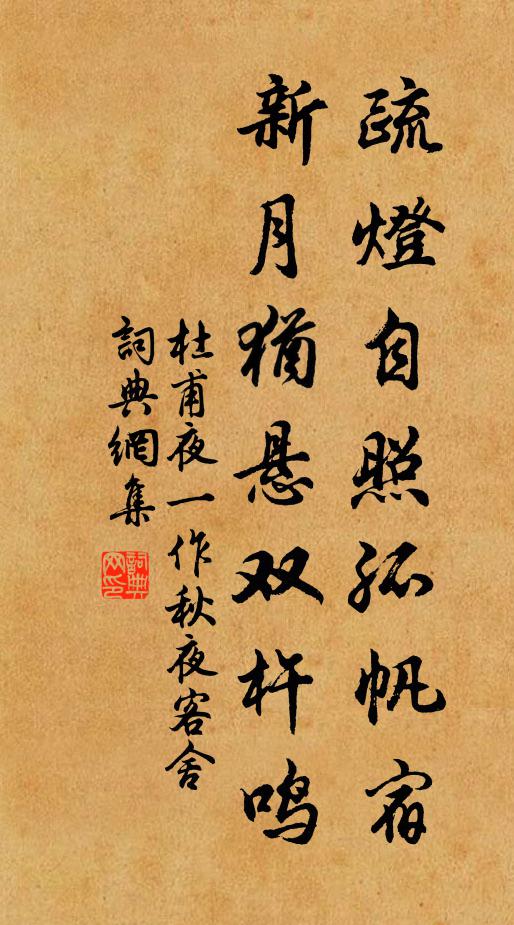 疏燈自照孤帆宿
新月犹悬双杵鸣
杜甫夜一作秋夜客舍
詞典網集
詞典
网印